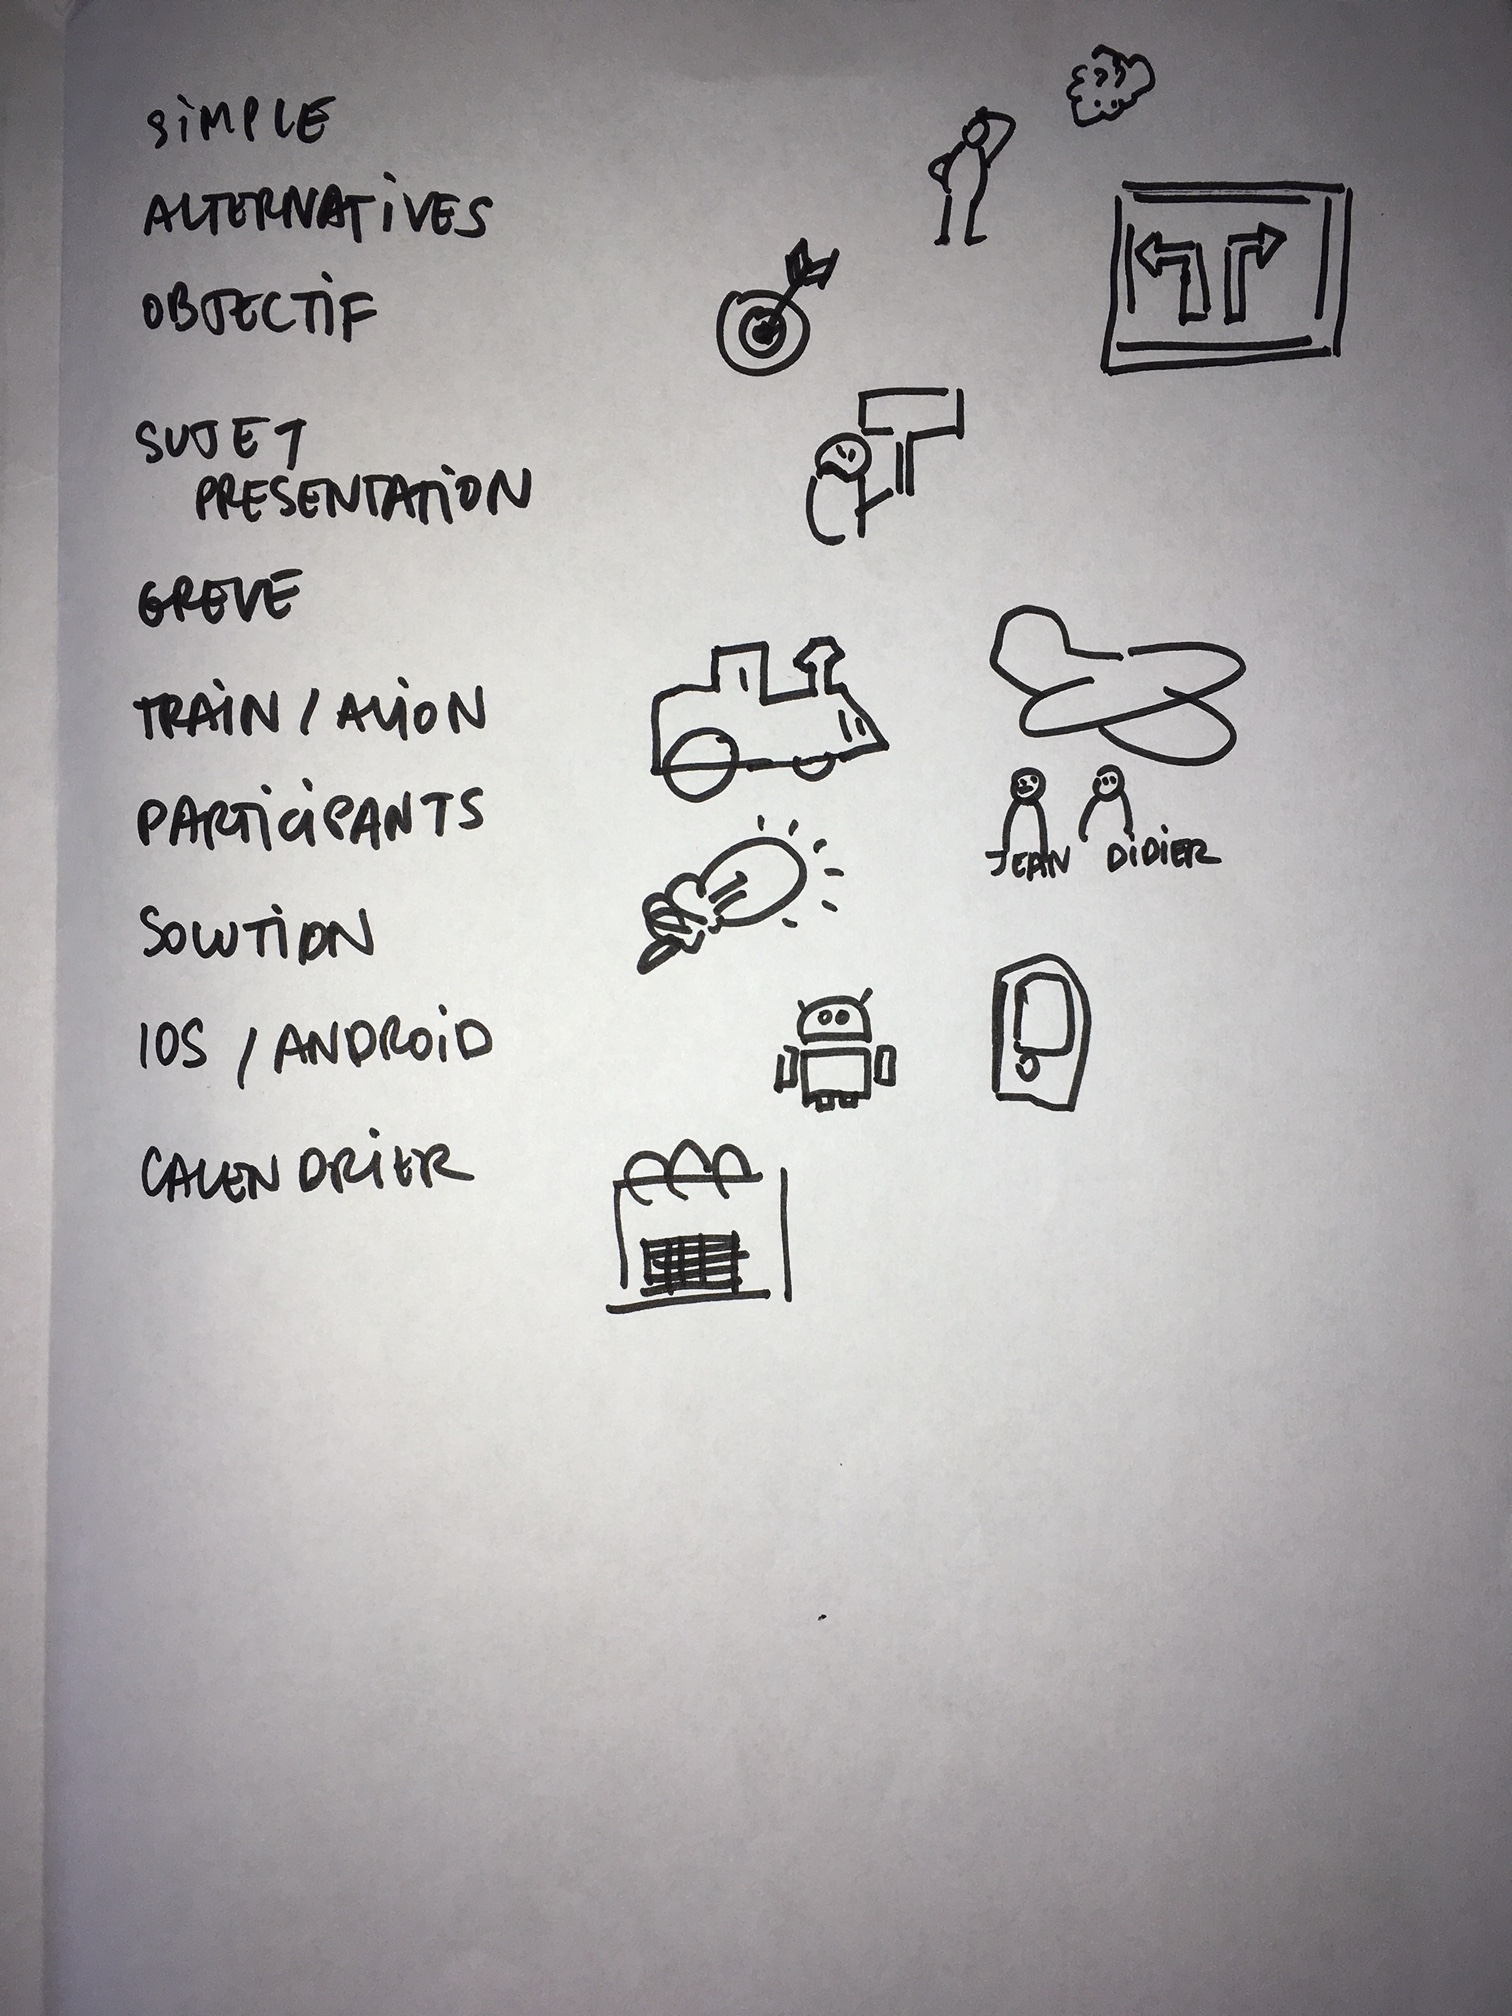 SiMPLE
ALTERNATiVES
OBJECTiF
SUJET
PRESENTATiON
GREVE
TRAiN / AViON
PARTiCiPANTS
JEAN DiDiER
SOLUTiON
IOS / ANDROiD
CALENDRiER